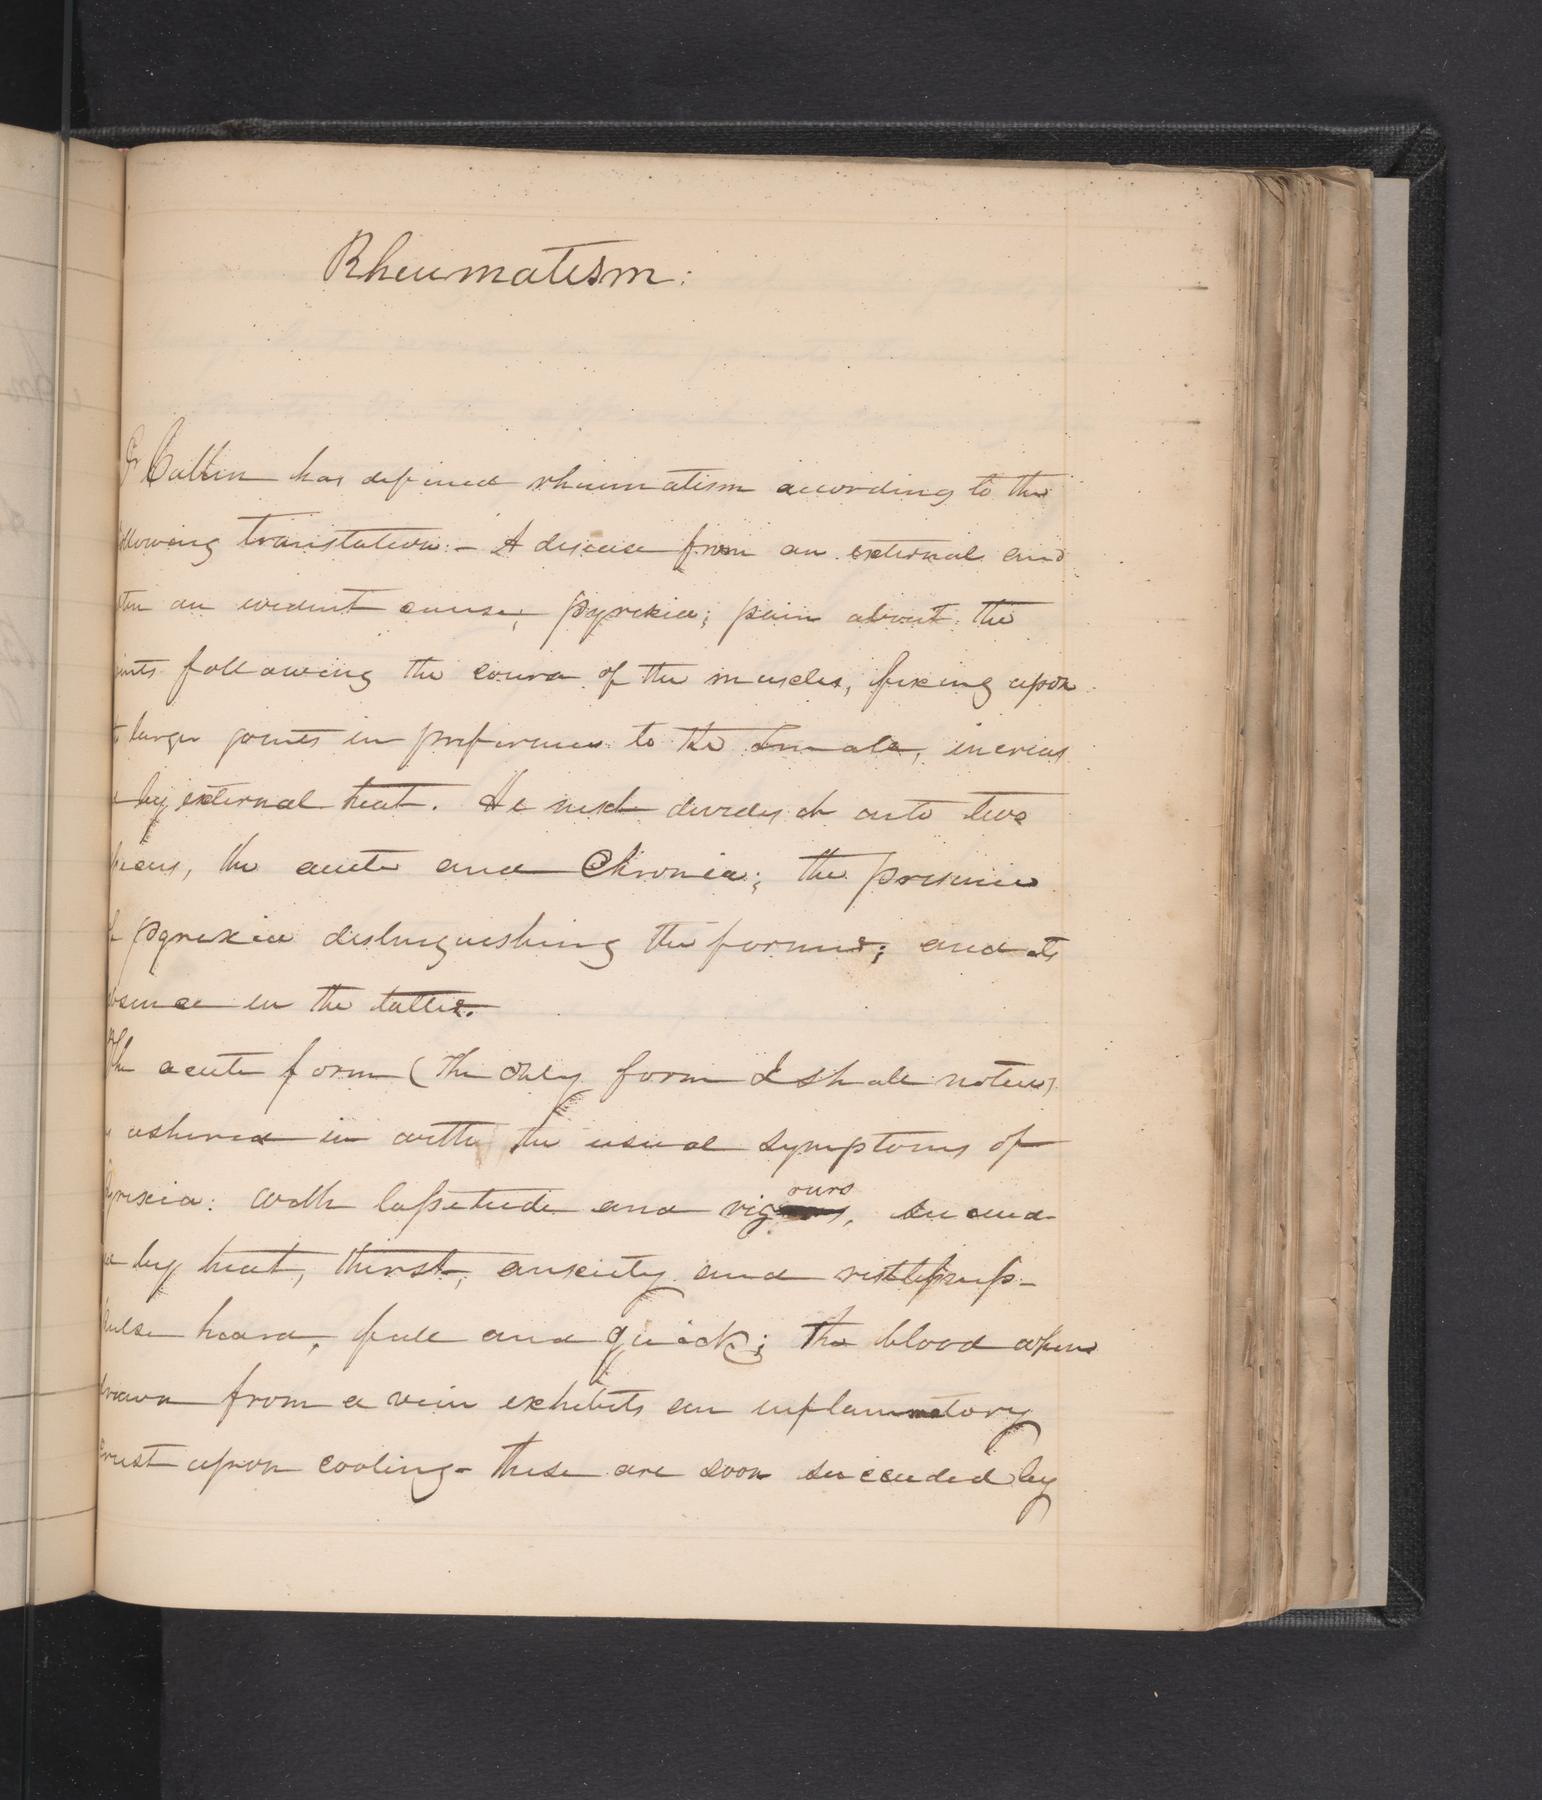 Rheumatism:
Dr Cullen has defined rheumatism according to the
following translation:- A disease from an external and
often an evident cause; pyrexia; pain about the
joints following the course of the muscles, fixing upon
larger joints in preference to the small, increas
by external heat. He next divides it into two
species, the acute and Chronic; the presence
of pyrexia distinguishing the former; and its
absence in the latter.
The acute form (The only form I shall notice)
ushered in with the usual symptoms of
Pyrexia: with lassitude and rigours, succeed
ed by heat, thirst, anxiety and restlessness-
Pulse hard, full and quick; The blood when
drawn from a vein exhibits an inflammatory
crust upon cooling- these are soon succeeded by